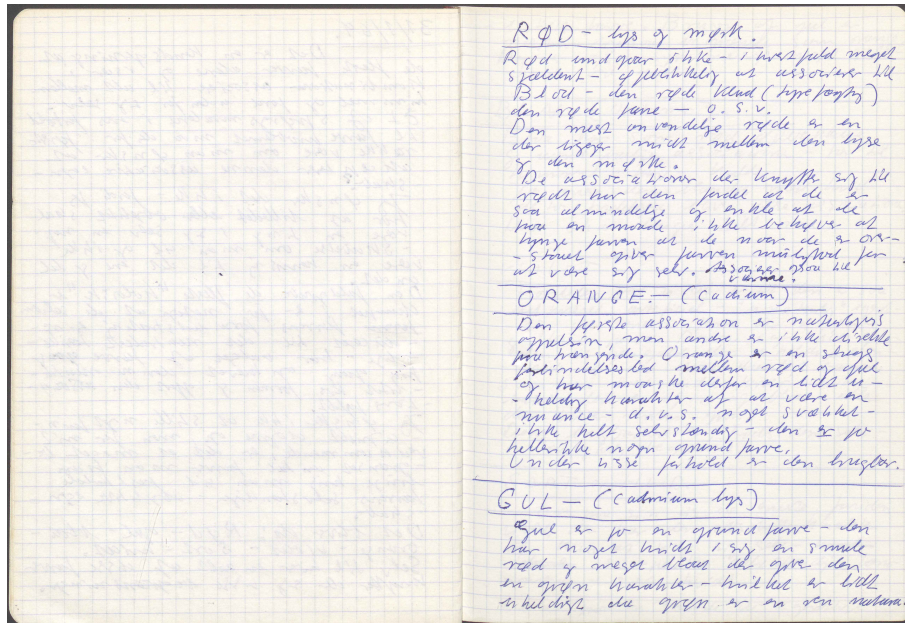 RØD - lys og mørk.
Rød undgaar ikke - i hvert fald meget
sjældent - øjeblikkelig at associerer til
Blod - den røde klud (tyrefægtg)
den røde fane — o.s.v.
Den mest anvendelige røde er en
der ligger midt mellem den lyse
og den mørke.
De associationer der knytter sig til
rødt har den fordel at de er
saa almindelige og enkle at de
paa en maade ikke behøver at
tynge farven at de naar de er over-
- staaet giver farven mulighed for
at være sig selv. Associerer ogsaa til
varme.
ORANGE. - (Cadium)
Den første association er naturligvis
appelsin, men andre er ikke direkte
paa trængende. Orange er en slags
forbindelsesled mellem rød og gul
og har maaske derfor en lidt u-
- heldig karakter af at være en
nuance - d.v.s. noget svækket -
ikke helt selvstændig - den er jo
hellerikke nogen grundfarve.
Under visse forhold er den brugbar.
GUL — (Cadmium lys)
gul er jo en grundfarve - den
har noget hvidt i sig en smule
rød og meget blaat der giver den
en grøn karakter - hvilket er lidt
uheldigt da grøn er en ren natura-